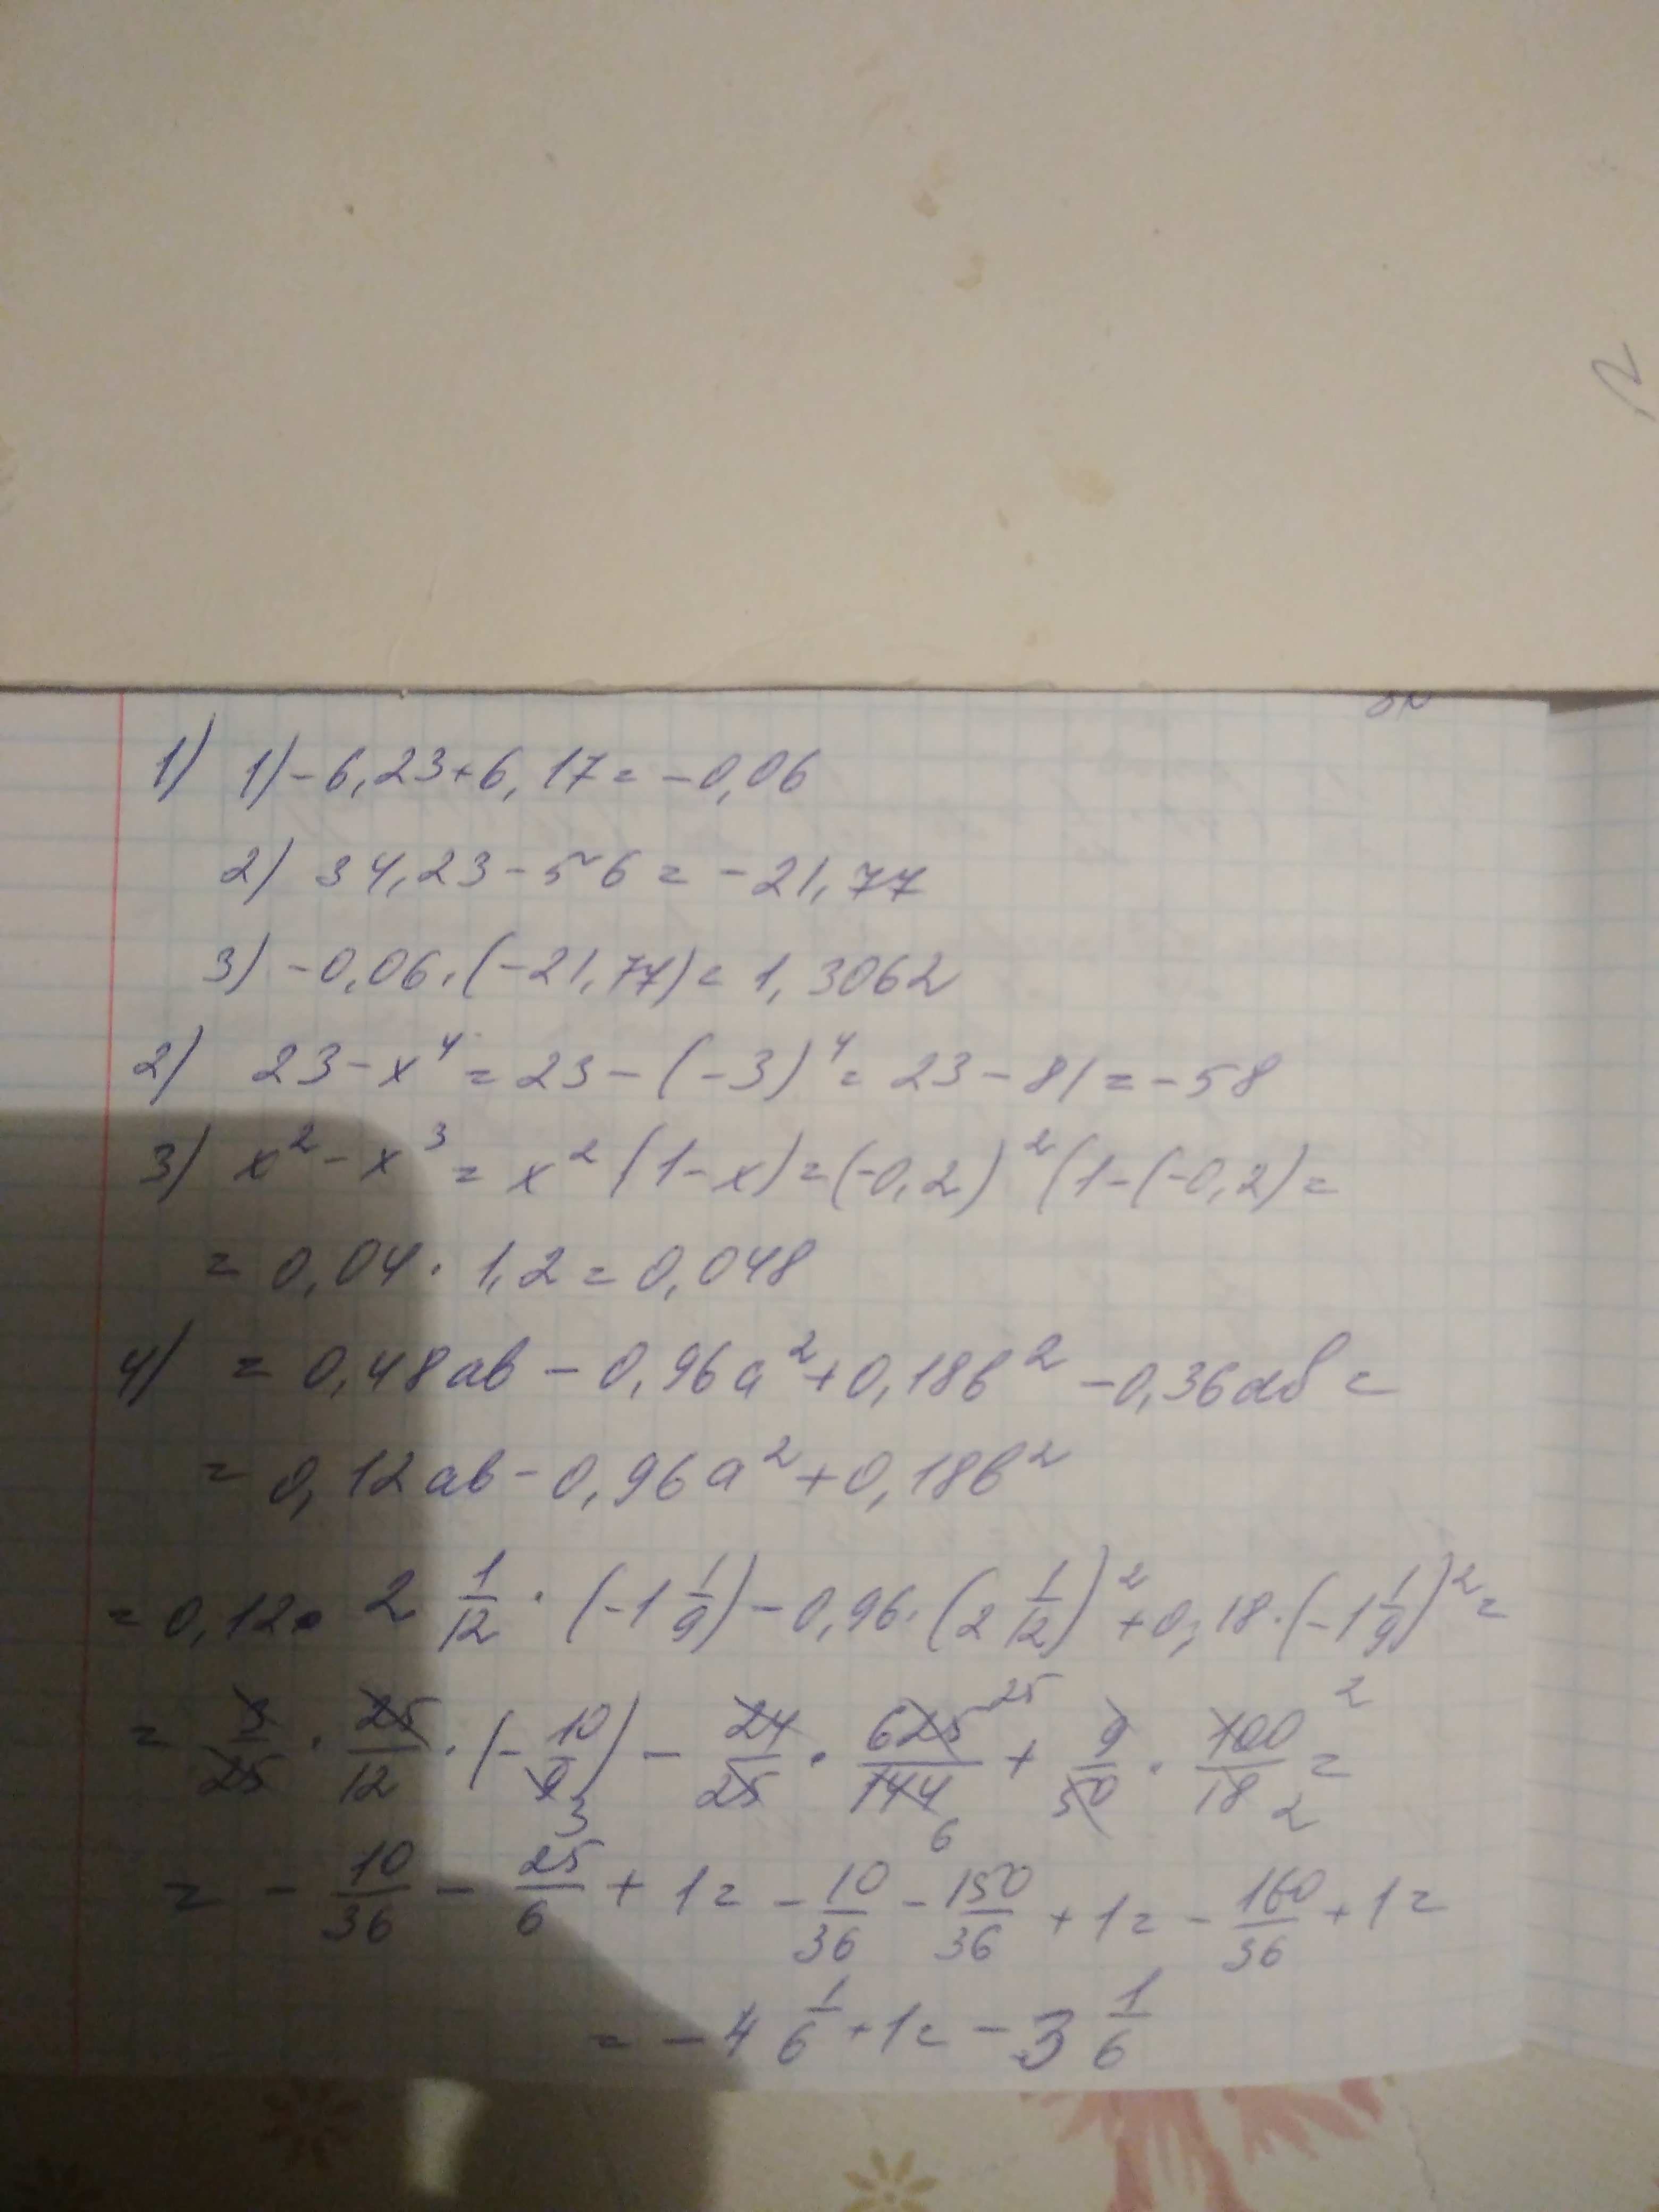 1) 1) -6,23+6,17= -0,06
2) 34,23-56= -21,77
3) -0,06·(-21,77)= 1,3062
2) 23-x⁴=23-(-3)⁴=23-81=-58
3) x²-x³=x²(1-x)=(-0,2)²(1-(-0,2)=
=0,04·1,2=0,048
4) =0,48ab-0,96a²+0,18b²-0,36ab=
=0,12ab-0,96a²+0,18b²
=0,12·2 1/12·(-1 1/9)-0,96·(2 1/12)²+0,18·(-1 1/9)²=
= 3/25 · 25/12 ·(- 10/9 3) - 24/25 · 625 25/144 6 + 9/50 · 100 2/18 2 =
= - 10/36 - 25/6 +1= - 10/36 - 150/36 +1= - 160/36 +1=
= -4 1/6 +1= -3 1/6